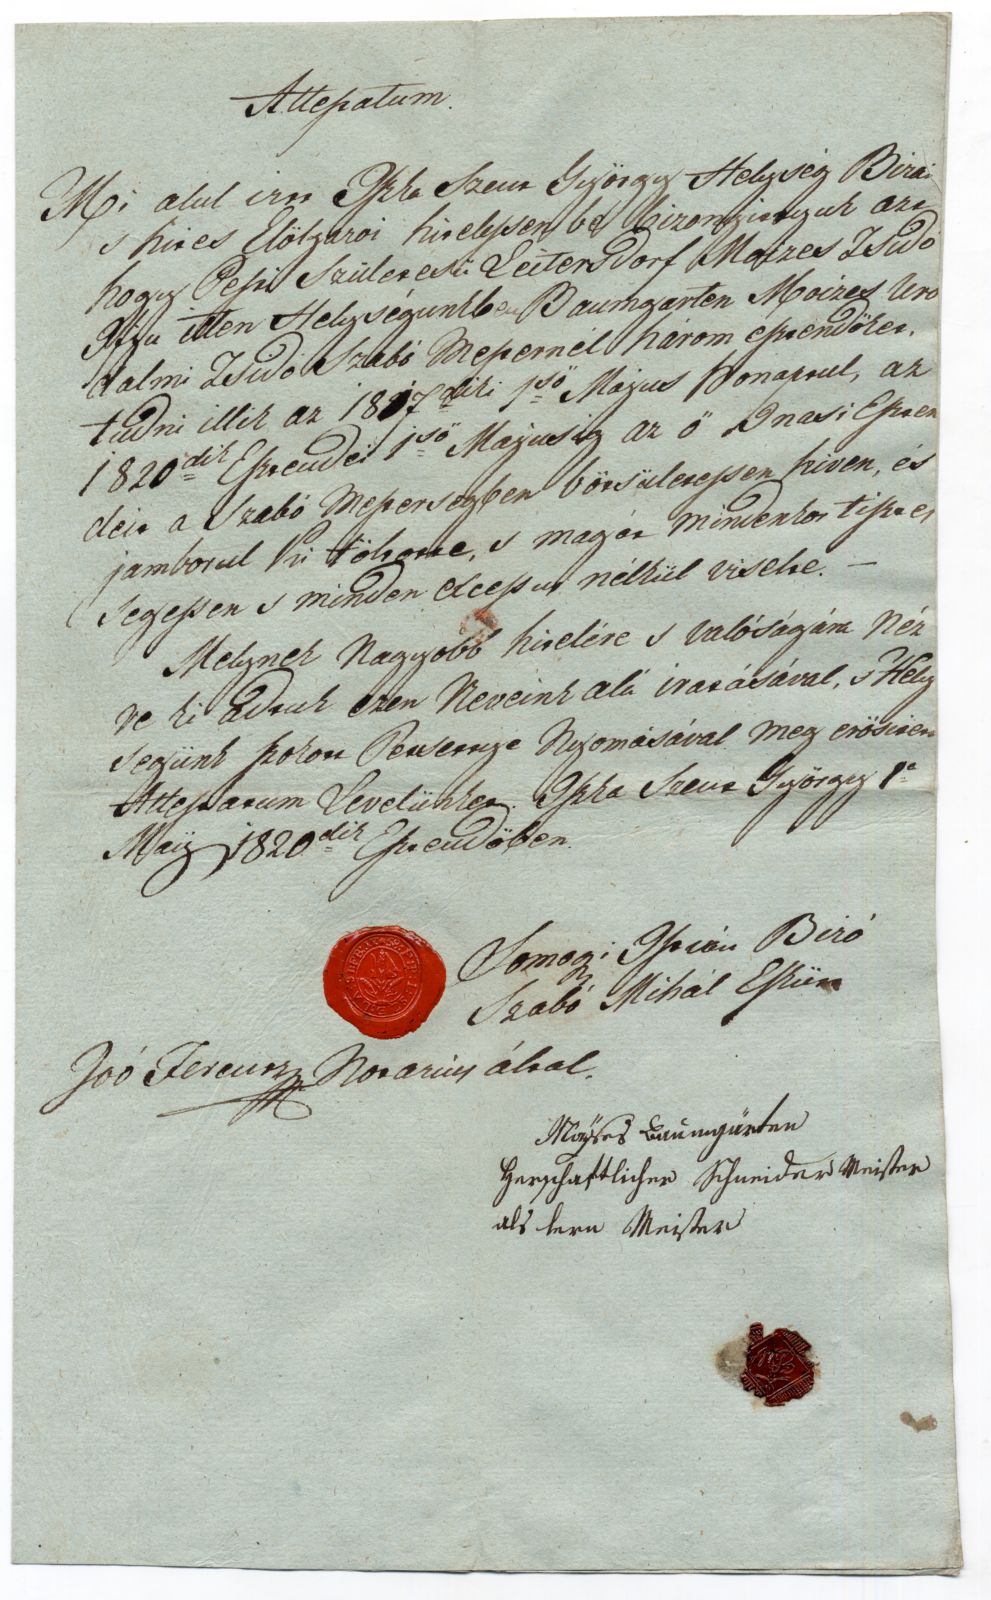 Attestatum.
Mi alul irtt Iszka Szent György Helység Birái
s hites Elöljárói hitelessen bé bizonyittyuk azt
hogy Pesti Születesü Leitersdorf Moizes Zsidó
Ifju itten Helységünkben Baumgarten Moizes Uro
dalmi Zsidó Szabó Mesternél három esztendőket.
tudni illik az 1817diki 1ső Május honaptul, az
1820dik Esztendei 1ső Májusig az ő Inasi Eszten
deit a Szabó Mesterségben bötsületessen hiven, és
jamborul ki töltötte, s magát mindenkor tisztes
segessen s minden exceptio nélkül viselte. —
Melynek Nagyobb hitelére s valóságára Néz
ve ki adtuk ezen Neveink alá irattásával, s Hely
ségünk szokott Petsettye Nyomásával meg erösitett
Attestatum Levelünket. Iszka Szent György 1a
Maÿ 1820dik Esztendöben.
Somogyi István Biró
Szabó Mihál Eskütt
Joó Ferentz Notarius által.
Moÿses Baumgärten
Herschaftlicher Schneider Meister
als lern Meister